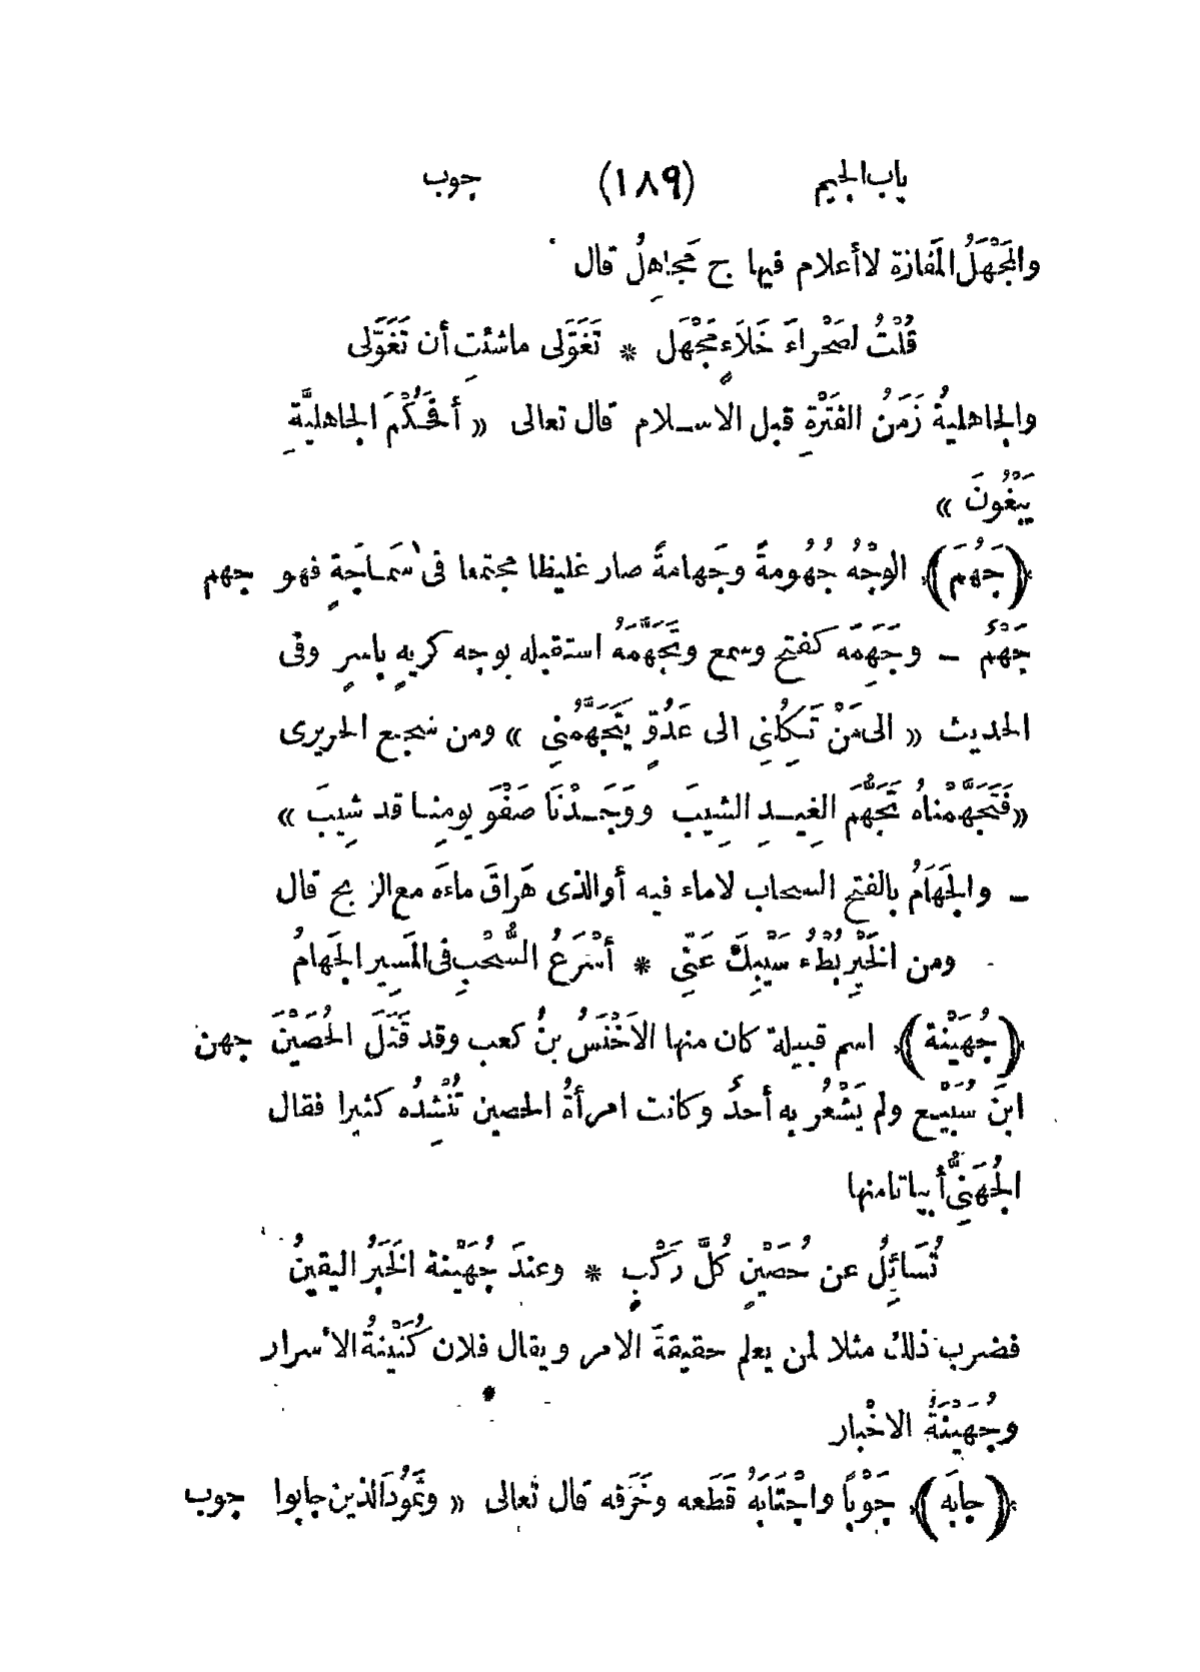 باب الجيم (١٨٩) جوب
والمَجْهَلُ المَفازة لا أعلام فيها ج مَجاهِلُ قال
قُلْتُ لصَحْراءَ خَلَاءٍ مَجْهَل * تَغَوَّلى ماشئتِ أن تَغَوَّلى
والجاهليةُ زَمَنُ الفَتْرةِ قبل الاسلام قال تعالى « أَفَحُكْمَ الجاهليَّةِ
يَبْغُونَ »
﴿جَهُمَ﴾ الوجْهُ جُهُومةً وجَهامةً صار غليظا مجتمعا فى سَمَاجَةٍ فهو جهم
جَهْمٌ – وجَهَِمَه كفتح وسمع وتَجَهَّمَهُ استقبله بوجه كريهٍ باسرٍ وفى
الحديث « الى مَنْ تَكِلُنِي الى عَدُوٍّ يَتَجَهَّمُنِي » ومن سجع الحريرى
« فَتَجَهَّمْناهُ تَجَهُّمَ الغِيدِ الشِيبَ ووَجَدْنَا صَفْوَ يومِنا قد شِيبَ »
– والجَهَامُ بالفتح السحاب لاماء فيه أو الذى هَراقَ ماءَه مع الريح قال
ومن الخَيْرِ بُطْءُ سَيْبِكَ عَنّى * أسْرَعُ السُّحْبِ فى المَسِير الجَهامُ
﴿جُهَيْنَة﴾ اسم قبيلة كان منها الاَخْنَسُ بنُ كعب وقد قَتَلَ الحُصَيْنَ جهن
ابنَ سُبَيْع ولم يَشْعُر به أحدٌ وكانت امرأةُ الحصين تُنْشِدُه كثيرا فقال
الجُهَنِيُّ أبياتا منها
تُسَائِلُ عن حُصَيْنٍ كُلَّ رَكْبٍ * وعندَ جُهَيْنةَ الخَبَرُ اليقينُ
فضرب ذلك مثلا لمن يعلم حقيقةَ الامر ويقال فلان كُنَيْنةُ الأسرار
وجُهَيْنَةُ الاخْبار
﴿جابَه﴾ جَوْباً واجْتَابَهُ قَطَعه وخَرَقه قال تعالى « وثَمُودَ الذين جابوا جوب